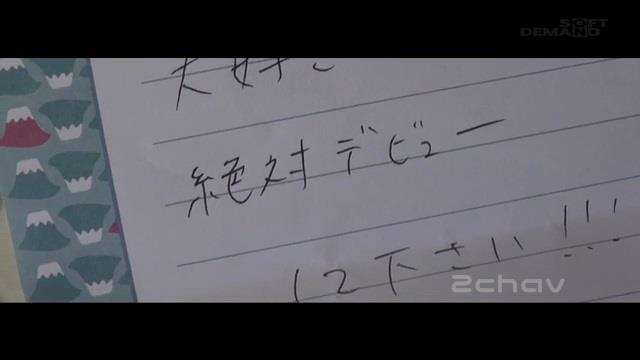 SOFT
DEMAND
大好き
絶対デビュー
して下さい!!!
2chav